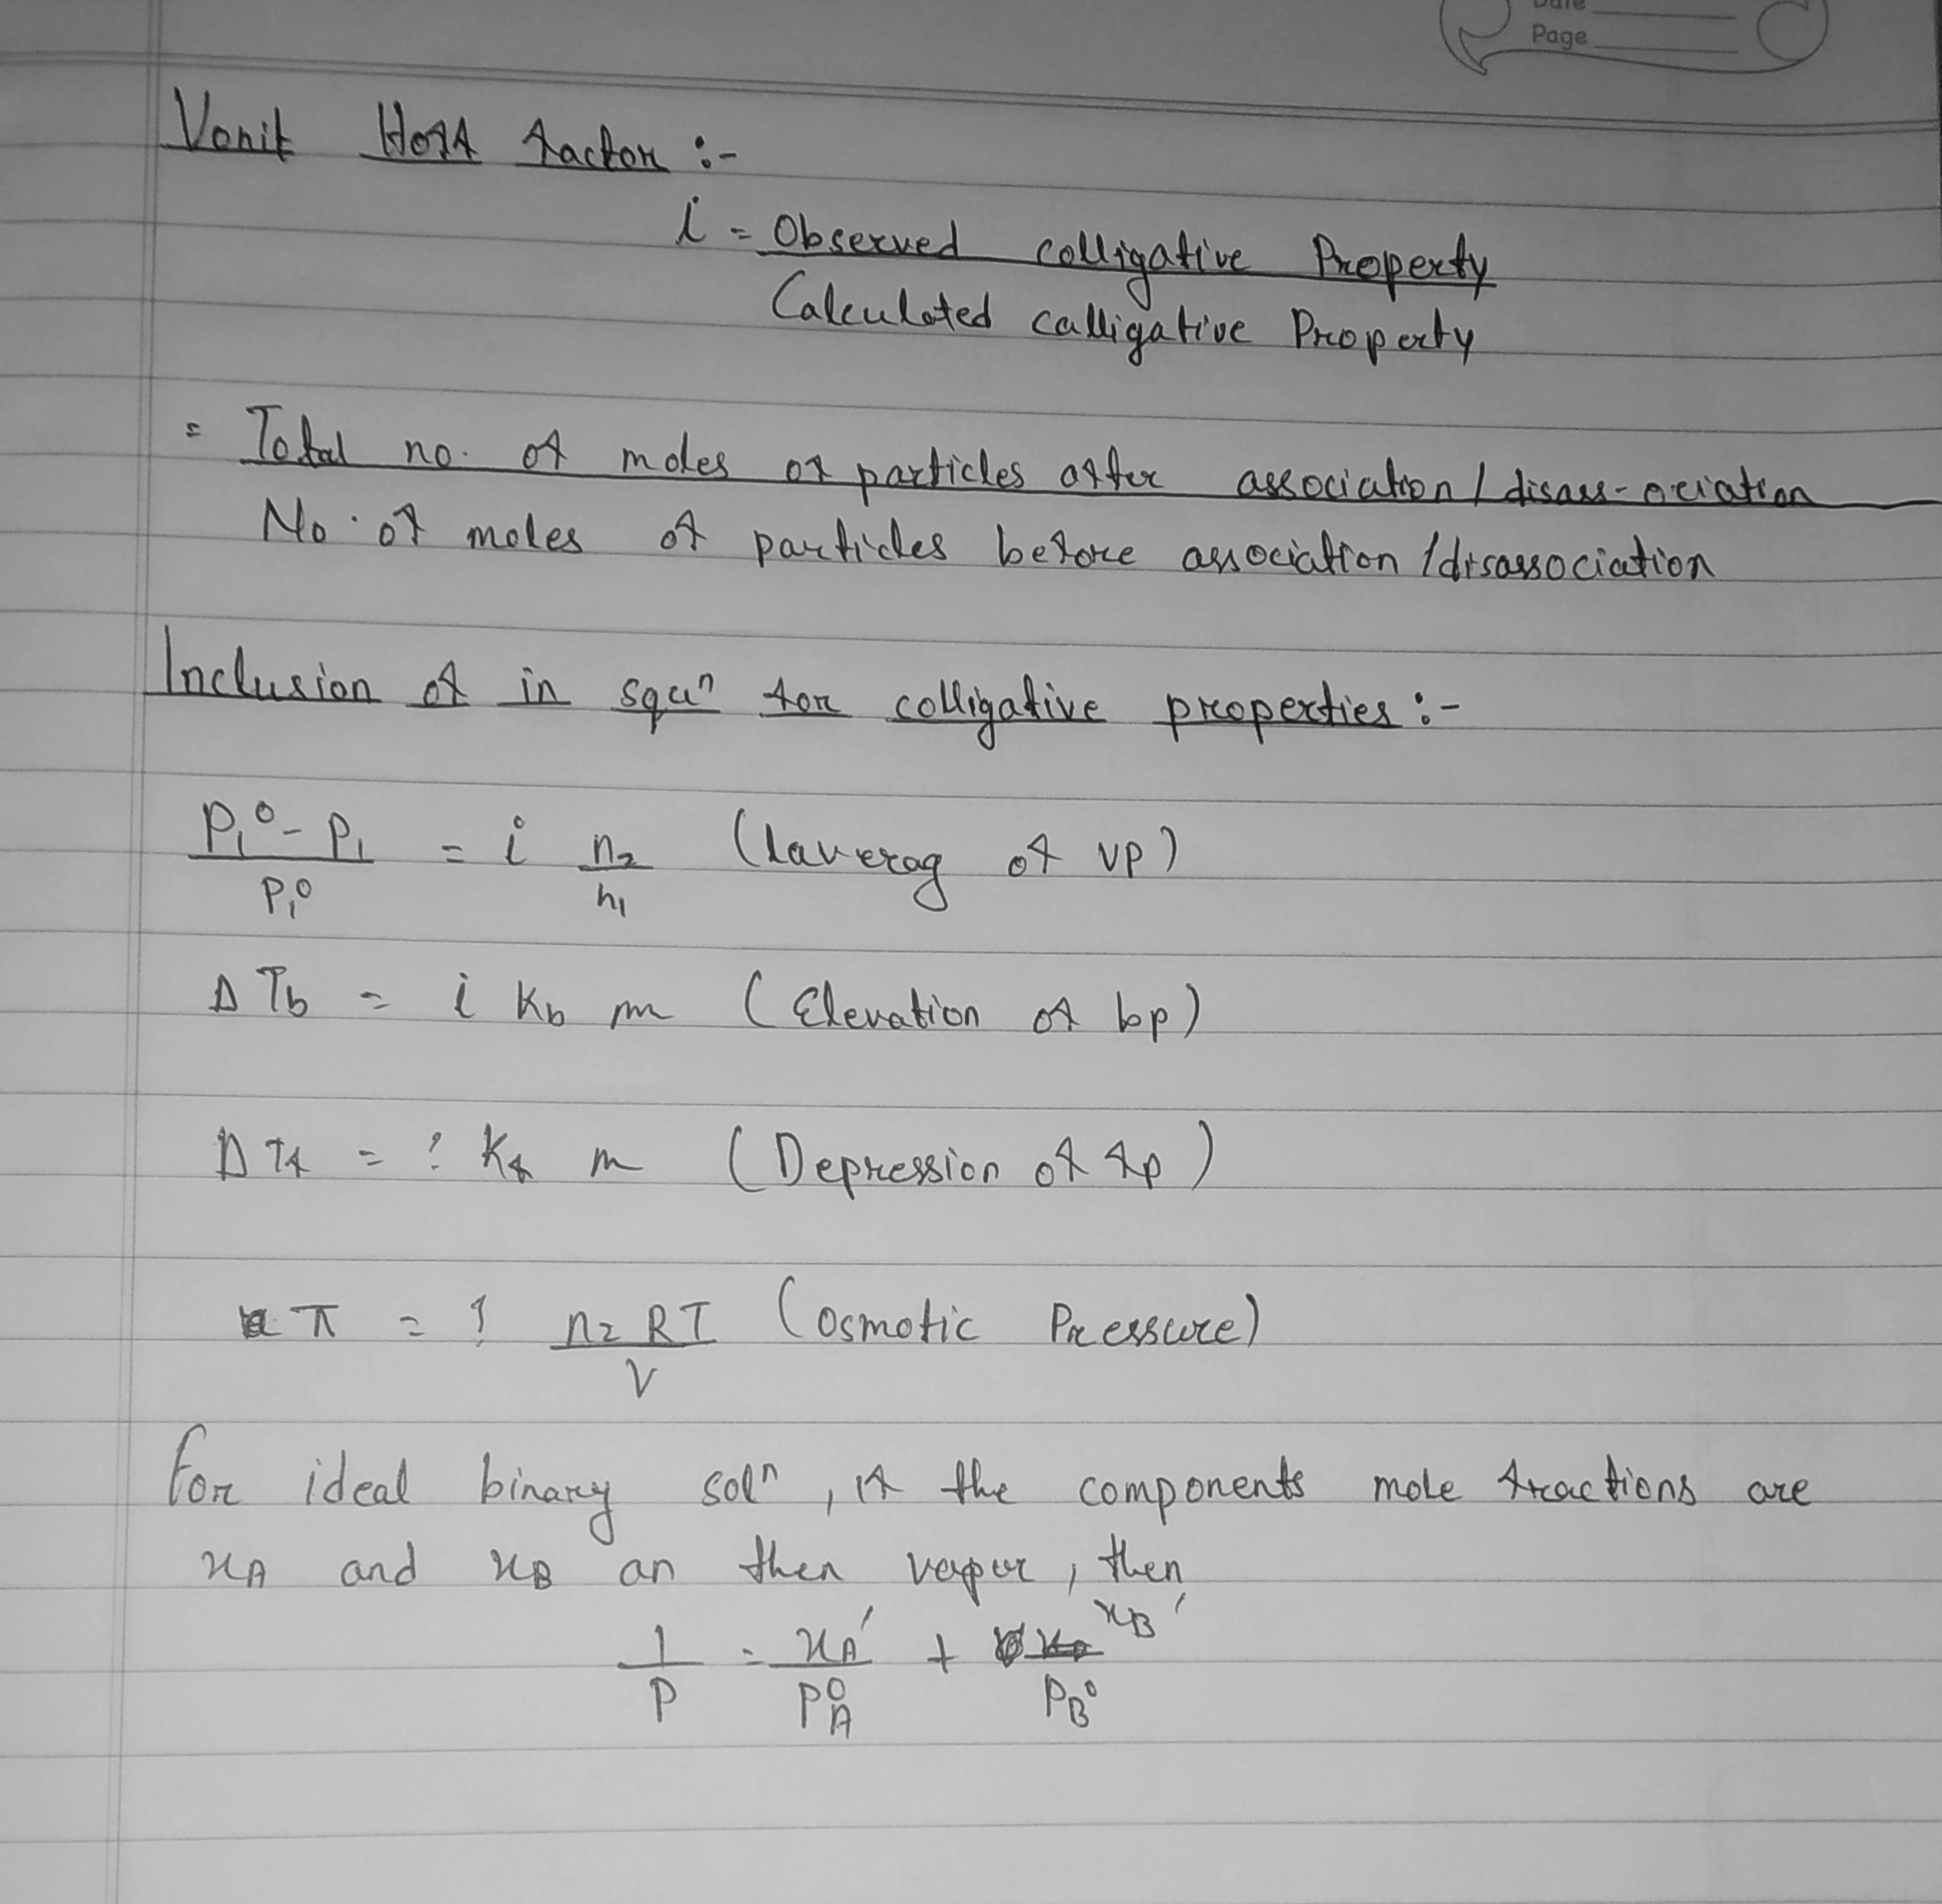 Date
Page
Vonit Hoff factor :-
i = Observed colligative Property
Calculated calligative Property
= Total no. of moles of particles after association / disass-ociation
No. of moles of particles before association / disassociation
Inclusion of in squⁿ for colligative properties :-
P₁⁰ - P₁ / P₁⁰ = i n₂ / n₁ (laverag of VP)
Δ Tb = i Kb m (Elevation of bp)
Δ Tf = i Kf m (Depression of fp)
π = i n₂ RT / V (Osmotic Pressure)
For ideal binary solⁿ, if the components mole fractions are
xA and xB an then vapur, then
1 / P = xA' / P⁰A + xB' / PB⁰